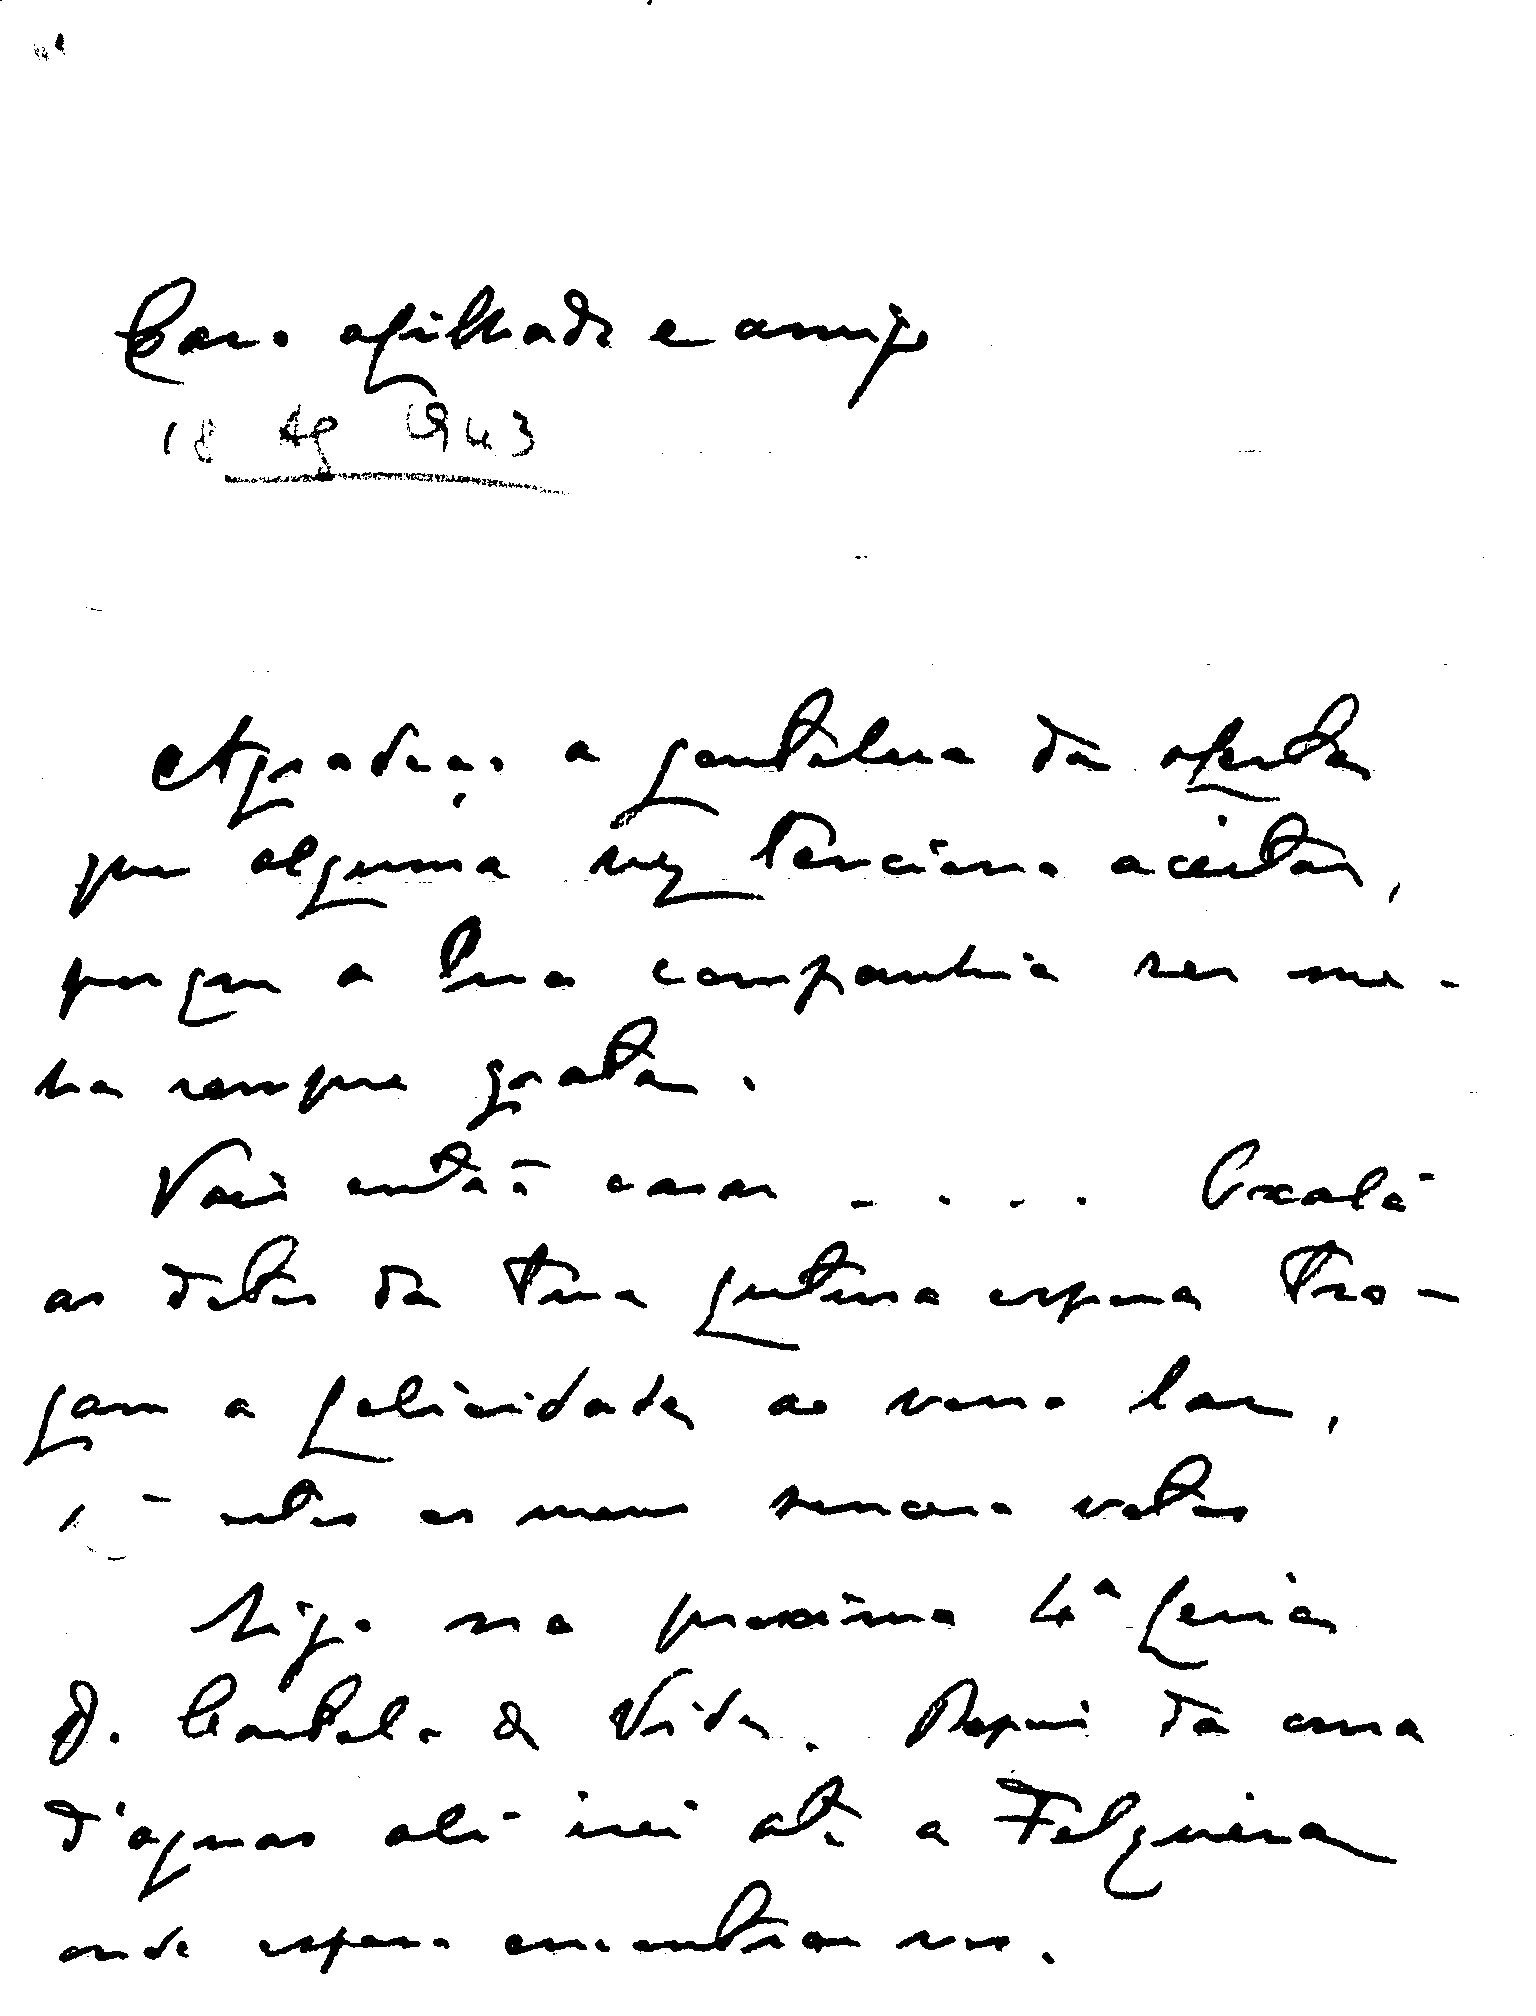 Caro afilhado e amigo
18 Ag 1943
Agradeço a gentileza da oferta
que alguma vez tenciono aceitar,
porque a tua companhia ser me-
ha sempre grata.
Vais então casar .... Oxalá
os dotes da tua futura esposa tra-
gam a felicidade ao vosso lar,
são estes os meus sinceros votos
Sigo na proxima 4ª feira
p. Castelo de Vide. Depois da cura
d'aguas ali irei até a Felgueira
onde espero encontrar vos.